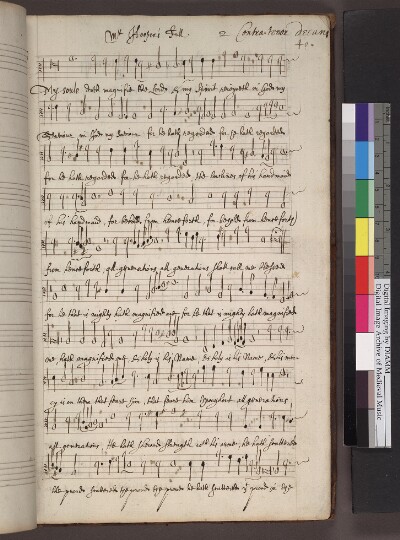 Mr Hooper's Full. 2 Contratenor decani
40.
My soule doth magnifie the Lord & my spirit rejoyceth in God my
Saviour in God my saviour for he hath regarded for he hath regarded
for he hath regarded for he hath regarded the lowlines of his handmaid
of his handmaid, for behold from henceforth for behold from henceforth
from henceforth all generations all generations shall call me blessed
for he that is mighty hath magnified me for he that is mighty hath magnified
me hath magnified me & holy is his Name & holy is his Name, & his mer-
cy is on them that feare him, that feare him throughout all generations,
all generations, He hath shewed strength with his arme he hath scattered
the proude the proude he hath scattered proude in the
Digital Images by DIAMM
Digital Image Archive of Medieval Music